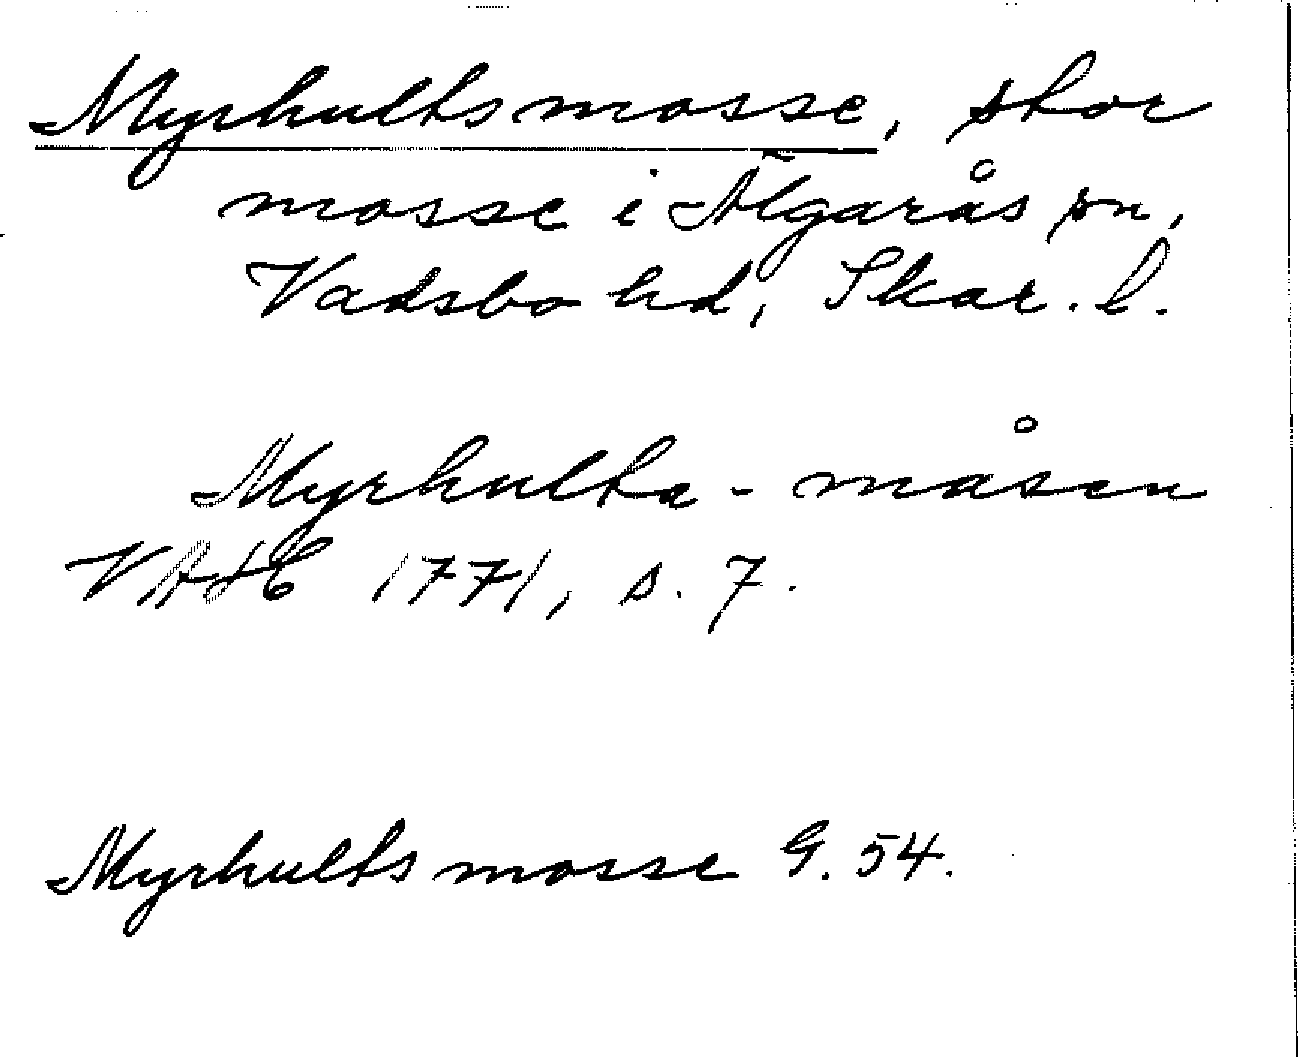 Myrhultsmosse, stor
mosse i Älgarås sn,
Vadsbo hd, Skar. l.
Myrhulta-måsen
VAHC 1771, s. 7.
Myrhultsmosse G. 54.